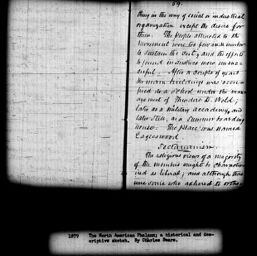 59.
thing in the way of social or industrial
organization except the desire for
them. The people attracted to the
movement were too few in number
to sustain the Unity and the effort
to found industries were unsuc-
cessful. After a couple of years
the main buildings was occu-
pied as a school under the man-
agement of Theodore D. Weld;
later as a military academy, and
later still, as a summer boarding
house. The place was named
Eagleswood.
Sectarianism.
The religious views of a majority
of the members might be character-
ized as liberal; and although there
were some who adhered to
1879 The North American Phalanx; a historical and des-
criptive sketch. By Charles Sears.